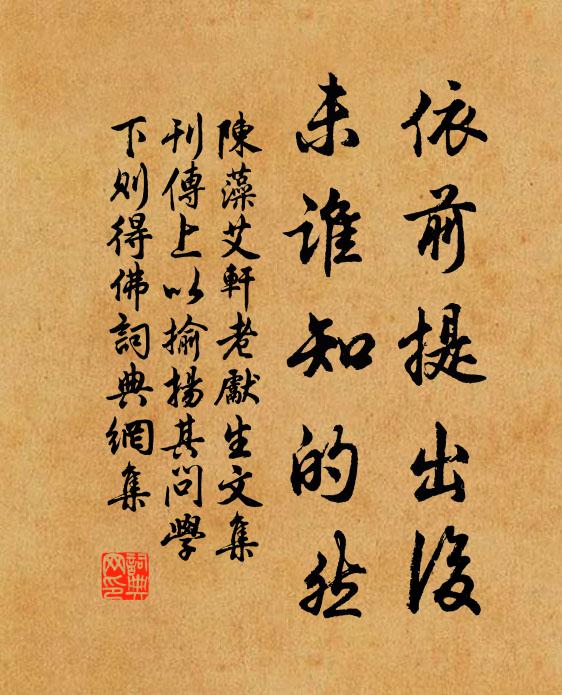 依前提出後
未誰知的然
陳藻艾軒老獻生文集
刊傳上以揄揚其問學
下則得佛詞典網集
詞典网印